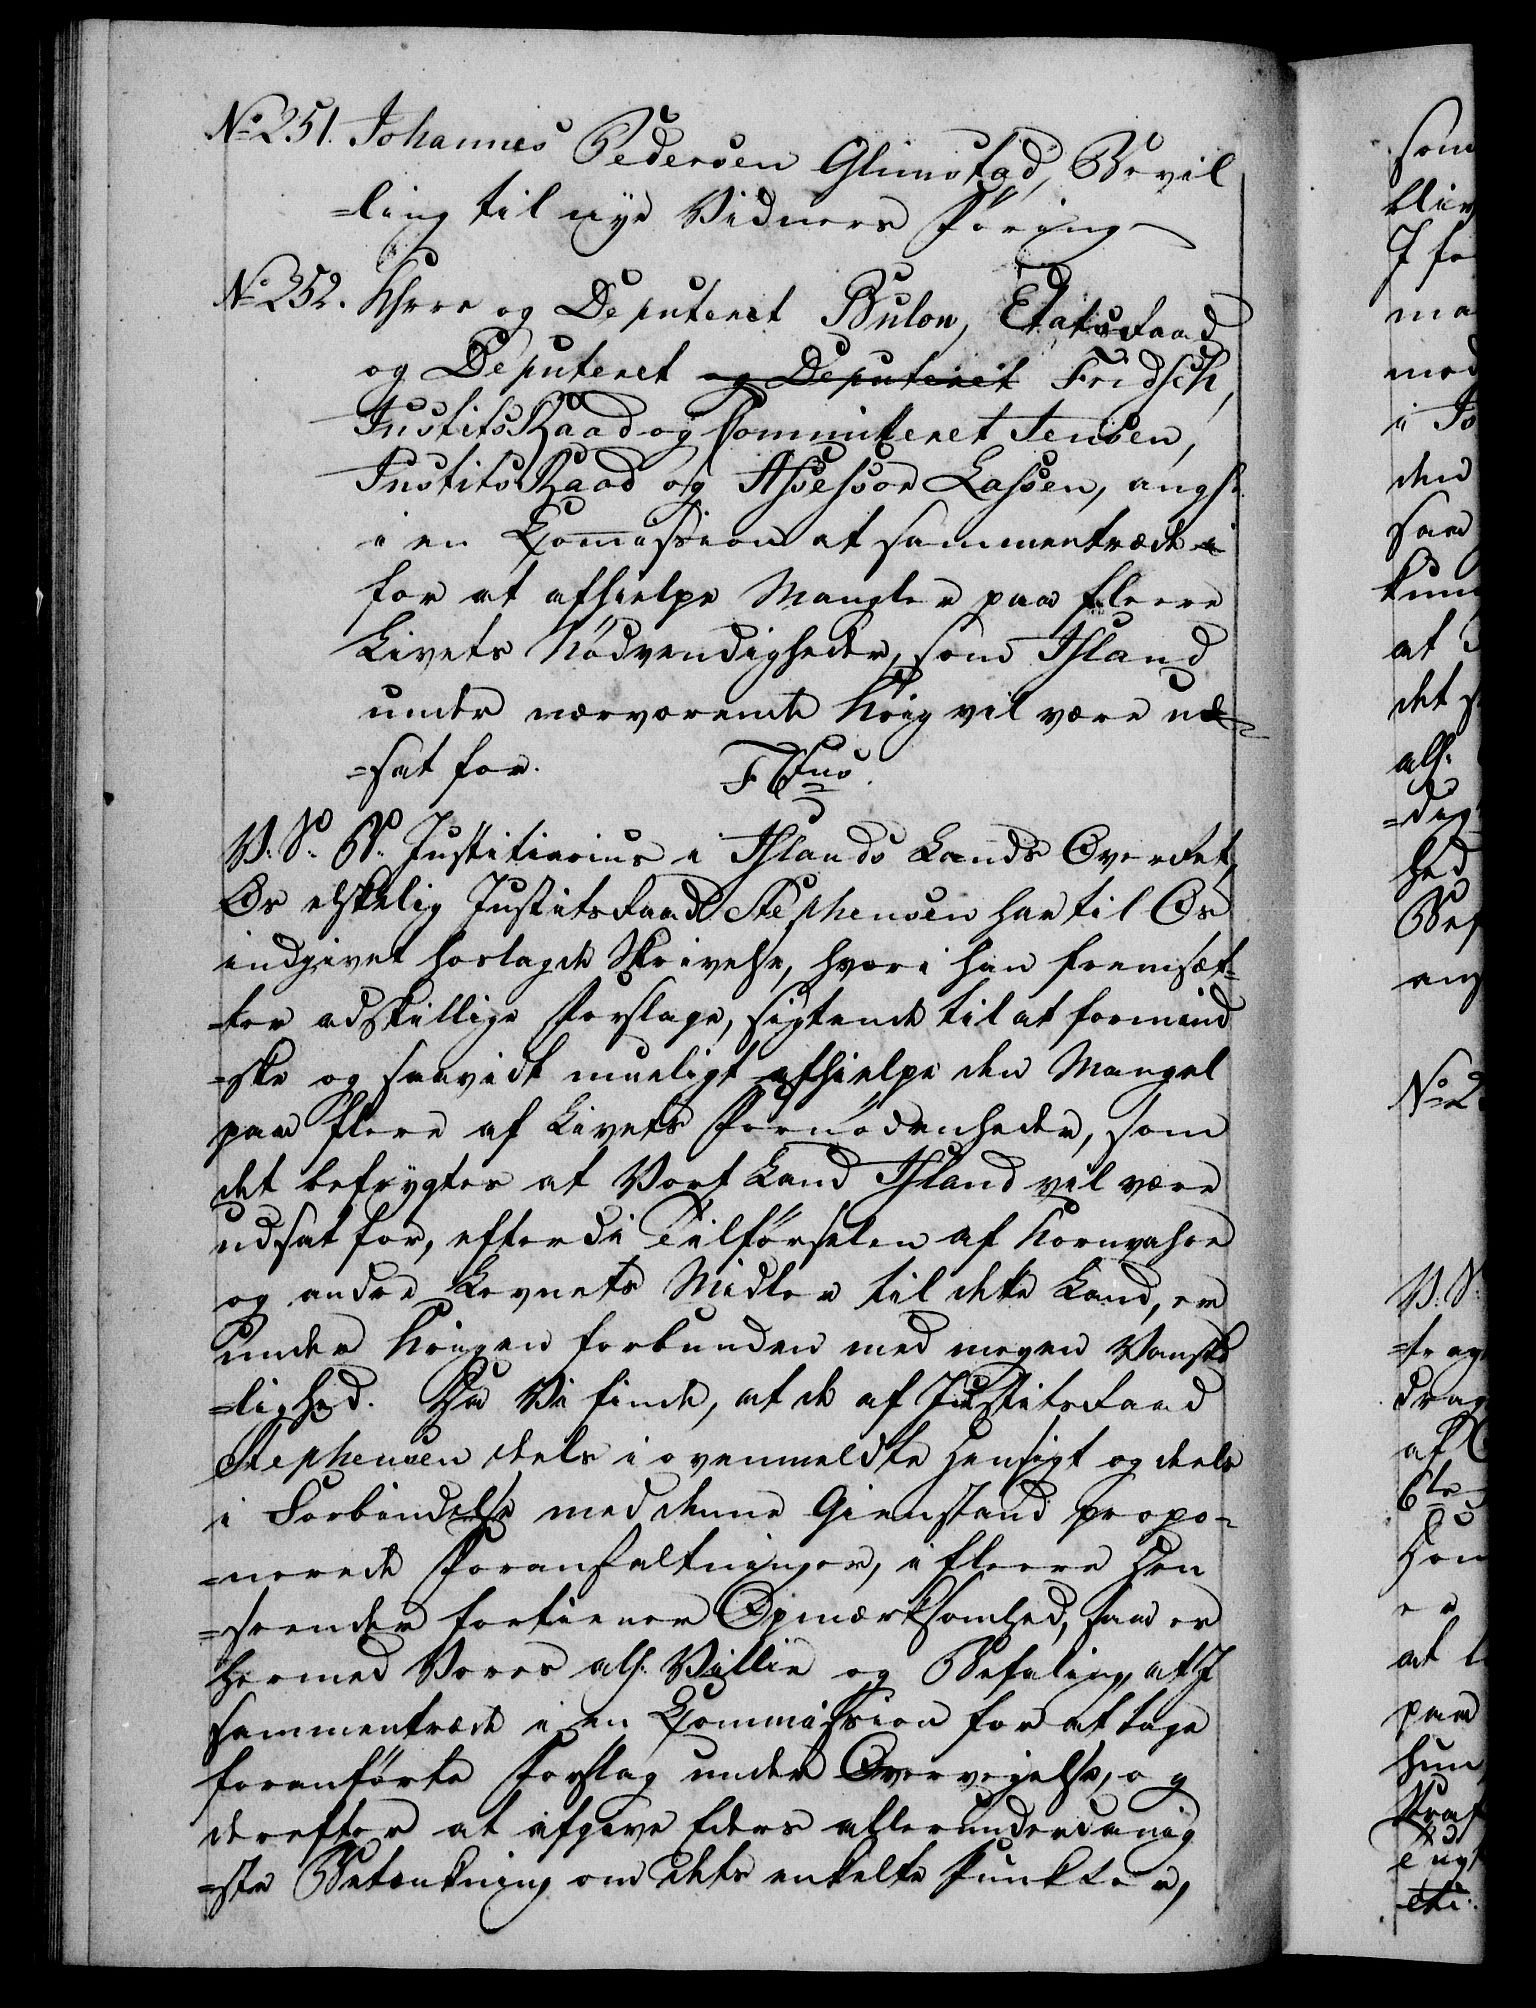 No 251. Johannes Pedersen Glimstad, Bevil
=ling til nye Vidners Föring
No 252. Khrre og Deputeret Bülow, Etatsraad
og Deputeret og Deputeret Fridsch,
JustitsRaad og Committeret Jensen,
JustitsRaad og Assessor Lassen, ang:
i en Commission at sammentræde
for at afhielpe Mangler paa fleere
Livets Nödvendigheder, som Island
under nærværende Krig vil være ud
=sat for.
V. S. G. V. Justitiarius i Islands Lands Overret,
Os elskelig Justitsraad Stephensen har til Os
indgivet hoslagde Skrivelse, hvori han fremsæt=
=ter adskillige Forslage, sigtende til at formind
=ske og saavidt mueligt afhielpe den Mangel
paa flere af Livets Fornödenheder, som
det befrygtes at Vort Land Island vil være
udsat for, efterdi Tilförselen af Kornvahre
og andre Levnets Midler til dette Land, er
under Krigen forbunden med megen Vanske
=lighed. Da Vi finde, at de af Justitsraad
Stephensen dels i ovenmeldte Hensigt og deels
i Forbindelse med denne Gienstand propo=
=nerede Foranstaltninger, i fleere Hen
=seender fortiener Opmærksomhed, saa er
hermed Vores all: Villie og Befaling, at I
sammentræde i en Commission for at tage
foranförte Forslag under Overveielse, og
derefter at afgive Eders allerunderdanig
=ste Betænkning om dets enkelte Punkter,